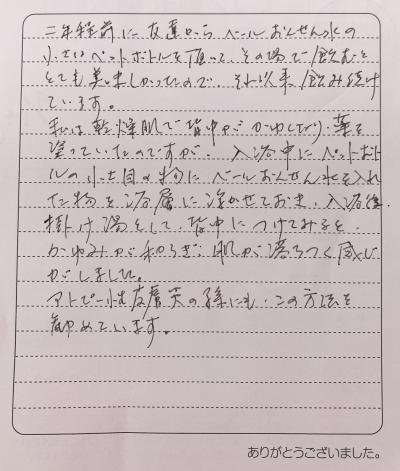 二年程前に友達から ベールおんせん水の
小さいペットボトルを頂って、その場で飲むと
とても美味しかったので、それ以来飲み続け
ています。
私は乾燥肌で背中がかゆくなり、薬を
塗っていたのですが、入浴中にペットボト
ルの小さ目の物にベールおんせん水を入れ
た物を浴層に浮かせておき、入浴後、
掛け湯をして、背中につけてみると、
かゆみが和らぎ、肌が落ちつく感じ
がしました。
アトピー性皮膚炎の孫にも、この方法を
勧めています。
ありがとうございました。